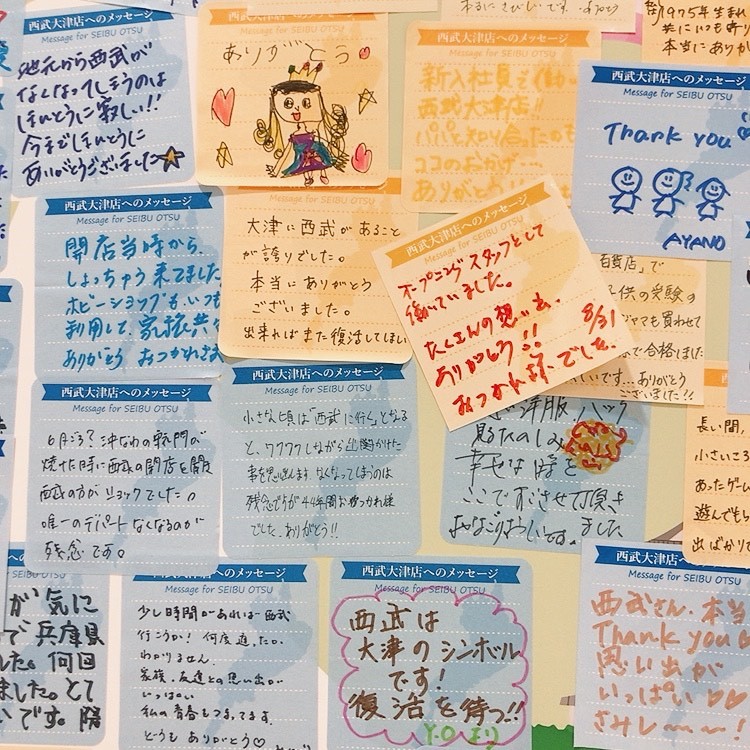 西武大津店へのメッセージ
Message for SEIBU OTSU
地元から西武が
なくなってしまうのは
ほんとうに寂しい!!
今までほんとうに
ありがとうございました
西武大津店へのメッセージ
Message for SEIBU OTSU
ありがとう
西武大津店へのメッセージ
Message for SEIBU OTSU
新入社員で
西武大津店!!
パパと知り合ったのも
ココのおかげ…
1975年生まれ
共に
本当にありが
西武大津店へのメッセージ
Message for SEIBU OTSU
Thank you
AYANO
西武大津店へのメッセージ
Message for SEIBU OTSU
開店当時から、
しょっちゅう来てました
ホビーショップも、いつも
利用して、家族共々
ありがとう おつかれさま
Message for SEIBU OTSU
大津に西武があること
が誇りでした。
本当にありがとう
ございました。
出来ればまた復活してほしい
西武大津店へのメッセージ
Message for SEIBU OTSU
オープニングスタッフとして
働いていました。
たくさんの想い出、
ありがとう!!
8/31
おつかれ様でした。
百貨店」で
子供の受験の
ジャマも買わせて
で合格しました
いです…ありがとう
ございました!!
西武大津店へのメッセージ
Message for SEIBU OTSU
焼けた時に西武の
西武の方がショックでした。
唯一のデパートなくなるのが
残念です。
西武大津店へのメッセージ
Message for SEIBU OTSU
小さな頃は「西武に行く」となる
と、ワクワクしながら出掛けた
事を思い出します なくなってしまうのは
残念ですが44年間お疲れ様
でした。ありがとう!!
洋服、バッグ
見るたのしみ
幸せな時を
ここで すごさせて頂き
ました
長い間、
小さいころ
あったゲーム
遊んでもら
出ばかりで
が気に
で兵庫県
した。何回
ました。とて
です。
西武大津店へのメッセージ
Message for SEIBU OTSU
少し時間があれば西武
行こうか!何度通ったか
わかりません。
家族、友達との思い出が
いっぱい
私の青春もつまってます。
どうも ありがとう♡
西武大津店へのメッセージ
Message for SEIBU OTSU
西武は
大津のシンボル
です!
復活を待つ!!
西武大津店へのメッセージ
Message for SEIBU OTSU
西武さん、本当
Thank you
思い出が
いっぱい♡♡
さみし〜〜!